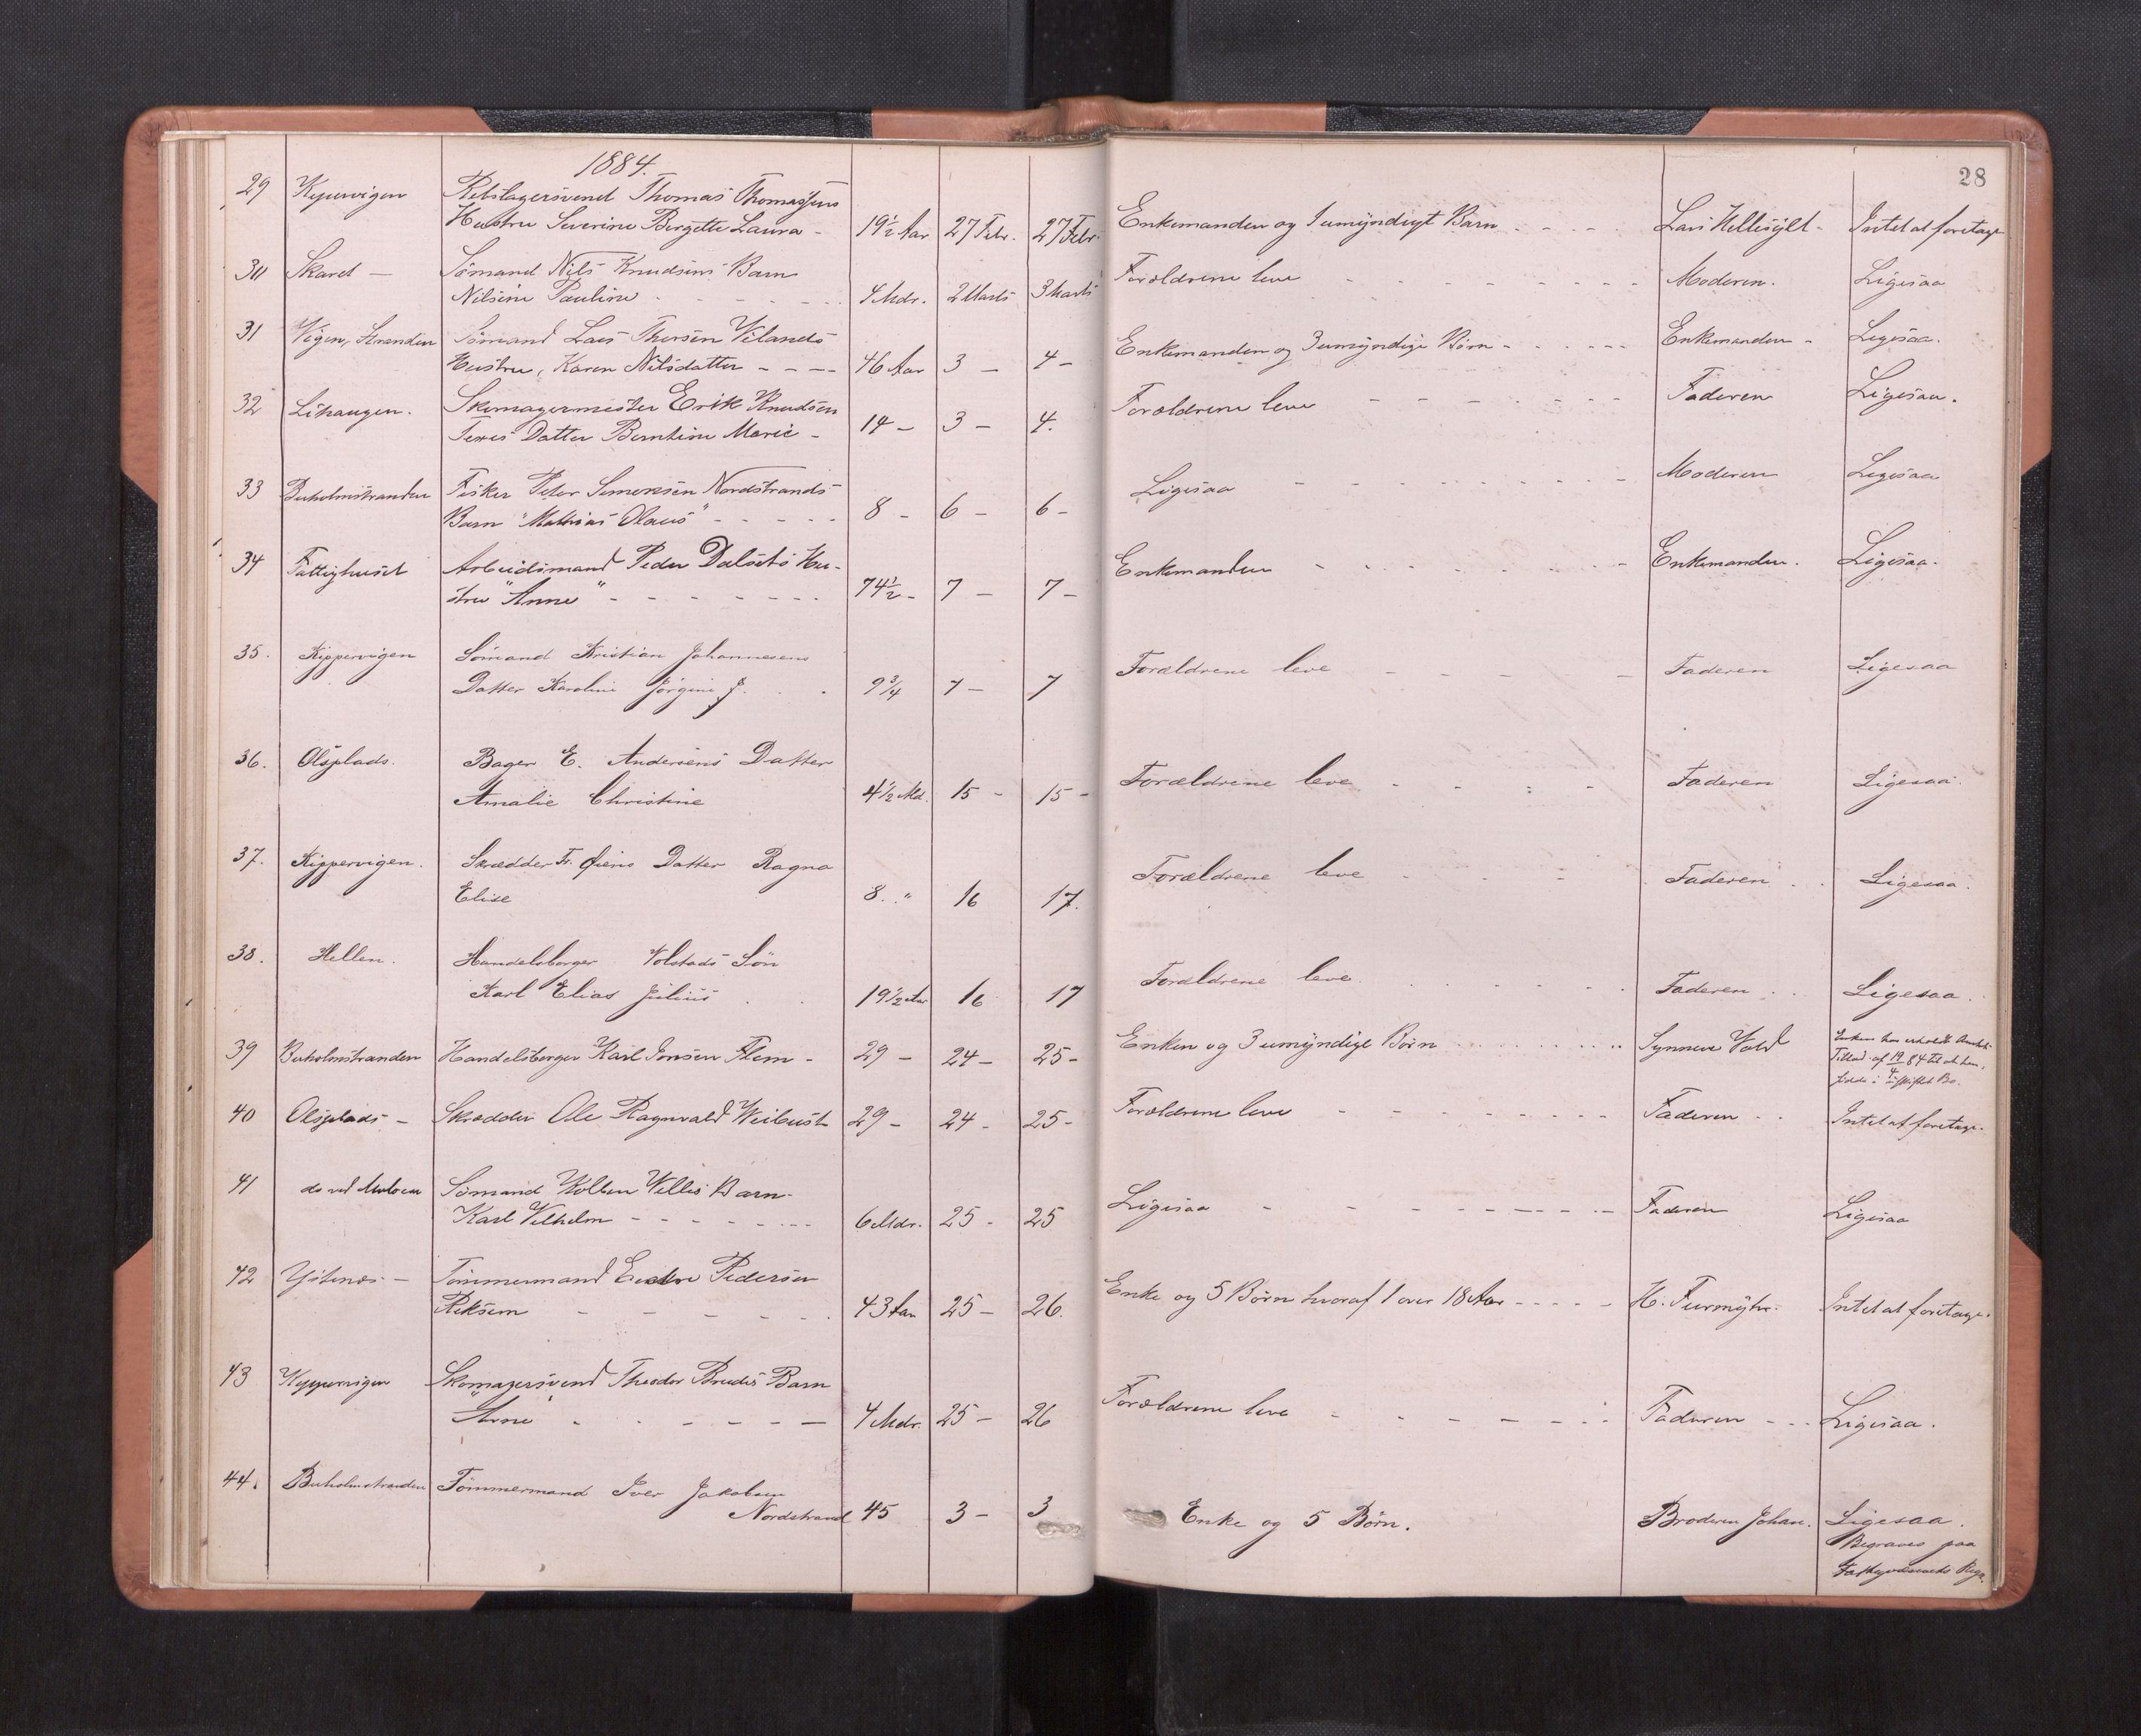 1884.
28
29 Kipervigen Rebslagersvend Thomas Thomassens
Hustru Severine Bergette Laura - 19½ Aar 27 Febr. 27 Febr. Enkemanden og 1 umyndigt Barn - - - - Lars Hellesylt - Intet at foretage
30 Skaret - Sømand Nils Knudsens Barn
Nilsine Pauline - - - - - - 4 Mdr. 2 Marts 3 Marts Forældrene leve - - - - - - - - Moderen. Ligesaa
31 Vigen, Stranden Sømand Lars Thorsen Vilands
Hustru, Karen Nilsdatter - - - - 46 Aar 3 - 4 - Enkemanden og 3 umyndige Børn - - - - - - Enkemanden - Ligesaa.
32 Lihaugen. Skomagermester Erik Knudsen
Datter Berntine Marie - 14 - 3 - 4. Forældrene leve - - - - - - - Faderen Ligesaa.
33 Buholmstranden Fisker Peter Simonsen Nordstrands
Barn "Mathias Olaus" - - - - - 8 - 6 - 6 - Ligesaa - - - - - - - - - Moderen Ligesaa
34 Fattighuset Arbeidsmand Peder Dalsets Hu-
stru "Anne" - - - - - - - - 74½ - 7 - 7 - Enkemanden - - - - - - - - Enkemanden. Ligesaa.
35. Kippervigen Sömand Kristian Johannesens
Datter Karoline Jørgine J. 9¾ 7 - 7 Forældrene leve - - - - - Faderen Ligesaa
36. Olsplads. Bager E. Andersens Datter
Amalie Christine 4½ Md. 15 - 15 - Forældrene leve - - - - Faderen Ligesaa.
37. Kippervigen. Skrædder Fr. Øiens Datter Ragna
Elise 8. " 16 17. Forældrene leve Faderen Ligesaa.
38. Hellen. Handelsborger Volstads Sön
Karl Elias Julius 19½ Aar 16 17 Forældrene leve Faderen Ligesaa.
39 Buholmstranden Handelsborger Karl Jonsen Flem - 29 - 24 - 25 - Enken og 3 umyndige Børn Synneve Vold Enken har erholdt Amtets
Tillad. af 19/4 84 til at hen-
sidde i uskiftet Bo.
40 Olsplads - Skrædder Ole Ragnvald Weibust 29 - 24 - 25 - Forældrene leve - - - - - - - - Faderen Intet at foretage.
41 do ved Moloen Sømand Barn
Karl Vilhelm - - - - - - 6 Mdr. 25 - 25 Ligesaa - - - - - - - Faderen Ligesaa
42 Ystenæs - Tømmermand Endre Pedersen
Reksem - - - - - 43 Aar 25 - 26. Enke og 5 Børn hvoraf 1 over 18 Aar - - - - - H. Furmyhr. Intet at foretage.
43 Kippervigen Skomagersvend Theodor Brudes Barn
"Arne" - - - - - - 4 Mdr. 25 - 26 Forældrene leve - - - - - - Faderen - - - Ligesaa.
44. Buholmstranden Tömmermand Iver Jakobsen
Nordstrand 45 3 - 3 Enke og 5 Børn. Broderen Johan. Ligesaa.
Begraves paa
Fattigvæsenets Regn.